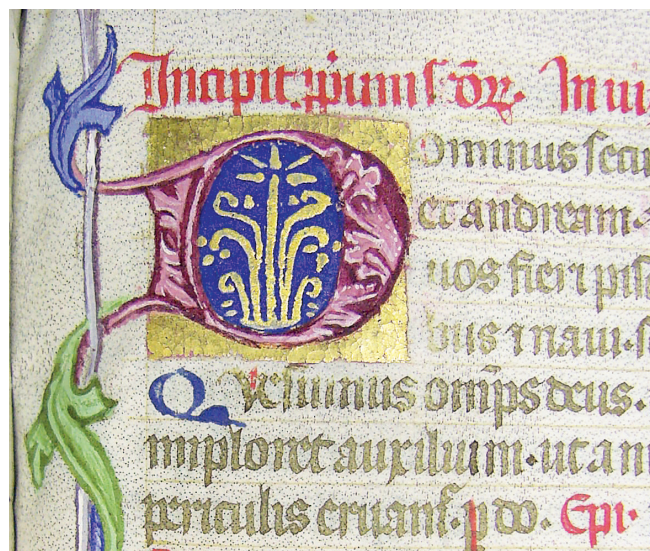 Incipit p̄unis ōr. In ui
Dominus secu
et andream.
uos fieri pis
bus i naui. s
Quesumus omīps deus.
imploret auxilium. ut a m
periculis eruant̄. p do. Epi.